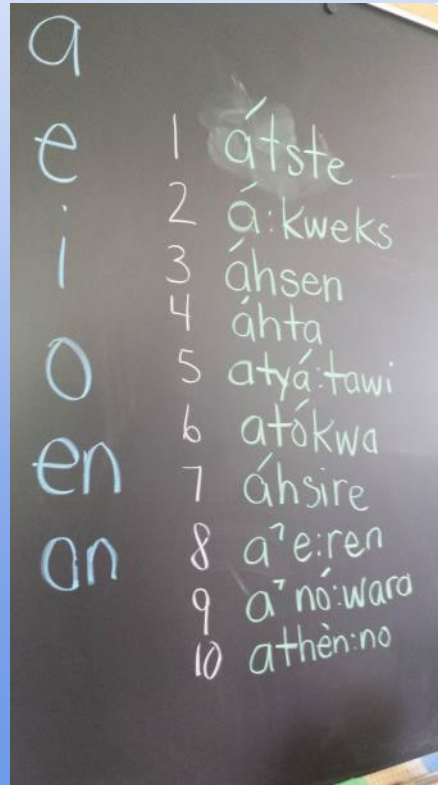 a
e
i
o
en
on
1 átste
2 á:kweks
3 áhsen
4 áhta
5 atyá:tawi
6 atókwa
7 áhsire
8 aˀe:ren
9 aˀnó:wara
10 athèn:no